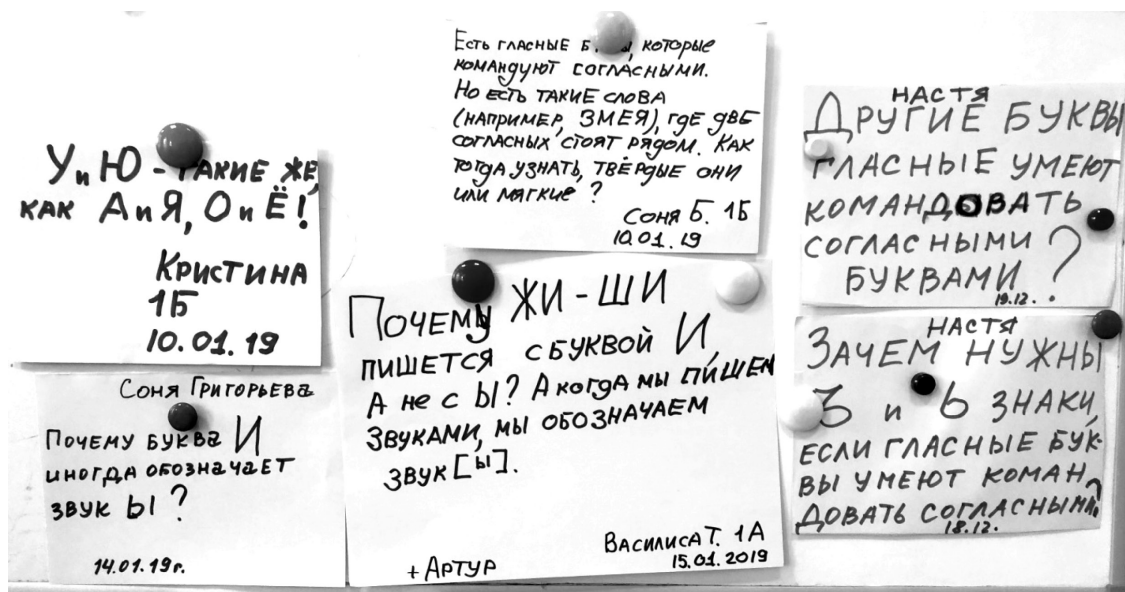 У и Ю - ТАКИЕ ЖЕ,
КАК А и Я, О и Ё!
КРИСТИНА
1Б
10.01.19
СОНЯ ГРИГОРЬЕВА
ПОЧЕМУ БУКВА И
ИНОГДА ОБОЗНАЧАЕТ
ЗВУК Ы?
14.01.19г.
ЕСТЬ ГЛАСНЫЕ, КОТОРЫЕ
КОМАНДУЮТ СОГЛАСНЫМИ.
НО ЕСТЬ ТАКИЕ СЛОВА
(НАПРИМЕР, ЗМЕЯ), ГДЕ ДВЕ
СОГЛАСНЫХ СТОЯТ РЯДОМ. КАК
ТОГДА УЗНАТЬ, ТВЁРДЫЕ ОНИ
ИЛИ МЯГКИЕ?
СОНЯ Б. 1Б
10.01.19
ПОЧЕМУ ЖИ-ШИ
ПИШЕТСЯ С БУКВОЙ И,
А НЕ С Ы? А КОГДА МЫ ПИШЕМ
ЗВУКАМИ, МЫ ОБОЗНАЧАЕМ
ЗВУК [Ы].
ВАСИЛИСА Т. 1А
+ АРТУР 15.01.2019
НАСТЯ
ДРУГИЕ БУКВЫ
ГЛАСНЫЕ УМЕЮТ
КОМАНДОВАТЬ
СОГЛАСНЫМИ
БУКВАМИ?
19.12.
НАСТЯ
ЗАЧЕМ НУЖНЫ
Ъ и Ь ЗНАКИ,
ЕСЛИ ГЛАСНЫЕ БУК-
ВЫ УМЕЮТ КОМАН-
ДОВАТЬ СОГЛАСНЫМИ?
18.12.